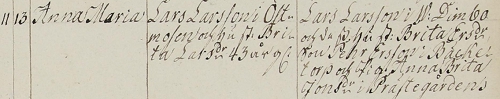 11 13 Anna Maria
Lars Larsson i Öst-
mosen och hust. Bri-
ta Larsdr 43 år gl.
Lars Larsson i W. Dimbo
och dess hust. Brita Ersdr
Pehr Ersson i Backe-
torp och pig. Anna Brita
Jonsdr i Prästegården